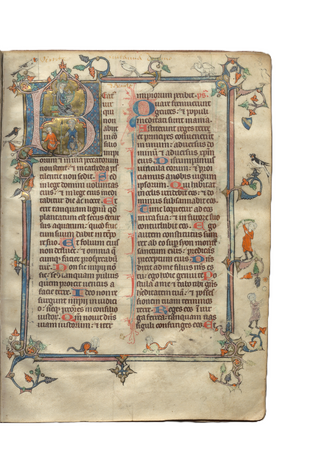 non
impiorum et in via peccatorum
non stetit: et in cathedra pe
stilentie non sedit. Sed
in lege domini voluntas
eius: et in lege eius medi
tabitur die ac nocte. Et
erit tanquam lignum qd
plantatum est secus decur
sus aquarum: quod fruc
tum suum dabit in tempo
re suo. Et folium eius
non defluet: et omnia que
cumque faciet prosperabun
tur. Non sic impii non
sic: sed tanquam pulvis
quem proicit ventus a
facie terre. Ideo non re
surgunt impii in iudici
o: neque peccatores in consilio
iustorum. Qm novit dns
viam iustorum: et iter
impiorum peribit. ps
Quare fremuerunt
gentes: et populi
meditati sunt inania.
Astiterunt reges terre
et principes convenerunt
in unum: adversus do
minum et adversus xpm
eius. Dirumpamus
vincula eorum: et proi
ciamus a nobis iugum
ipsorum. Qui habitat
in celis irridebit eos: et do
minus subsannabit eos.
Tunc loquetur ad eos
in ira sua: et in furore suo
conturbabit eos. Ego
autem constitutus sum
rex ab eo super syon montem
sanctum eius: predicans
preceptum eius. Dns
dixit ad me filius meus es
tu: ego hodie genui te. Po
stula a me: et dabo tibi gentes
hereditatem tuam: et posses
sionem tuam terminos
terre. Reges eos in vir
ga ferrea: et tanquam vas
figuli confringes eos. Et